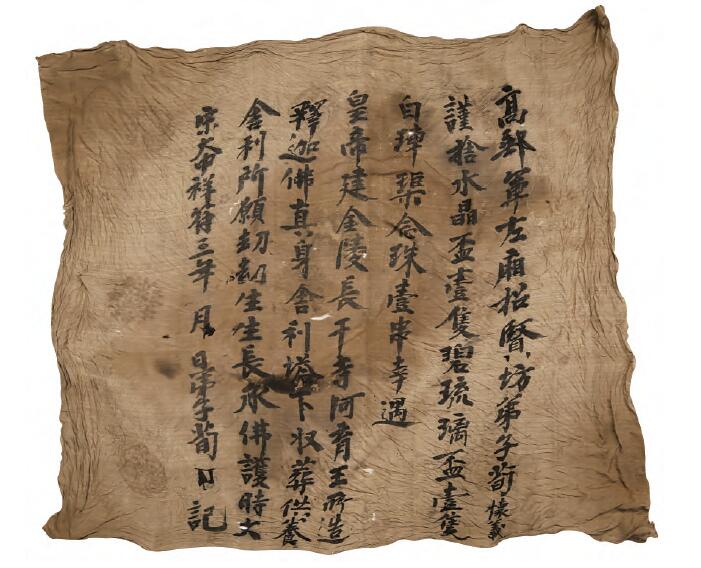 高郵軍左廂招賢坊弟子荀懷義
謹捨水晶盃壹隻碧琉璃盃壹隻
白硨磲念珠壹串幸遇
皇帝建金陵長干寺阿育王所造
釋迦佛真身舍利塔下収葬供養
舍利所願劫劫生生長承佛護時大
宋大中祥符三年 月 日弟子荀 記